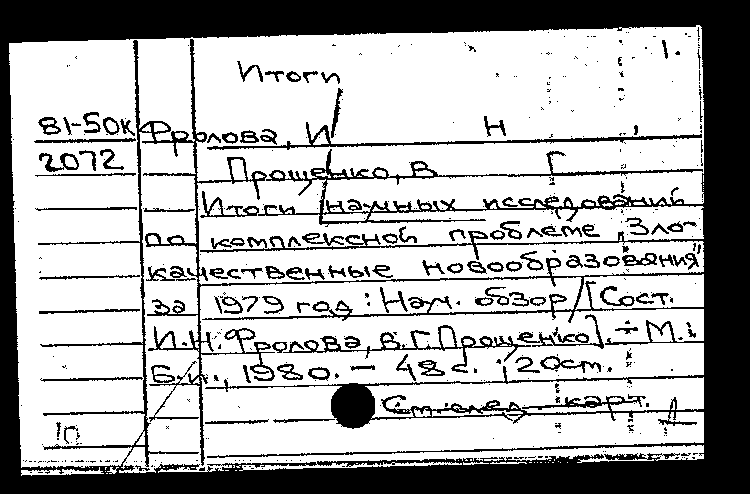 1.
Итоги
81-50к Фролова, И Н ,
2072 Прощенко, В Г
Итоги научных исследований
по комплексной проблеме „Зло-
качественные новообразования"
за 1979 год : Науч. обзор / [Сост.
И.Н. Фролова, В.Г. Прощенко]. – М.:
Б.и., 1980. – 48 с. ; 20 см.
См. след. карт.
10 Д